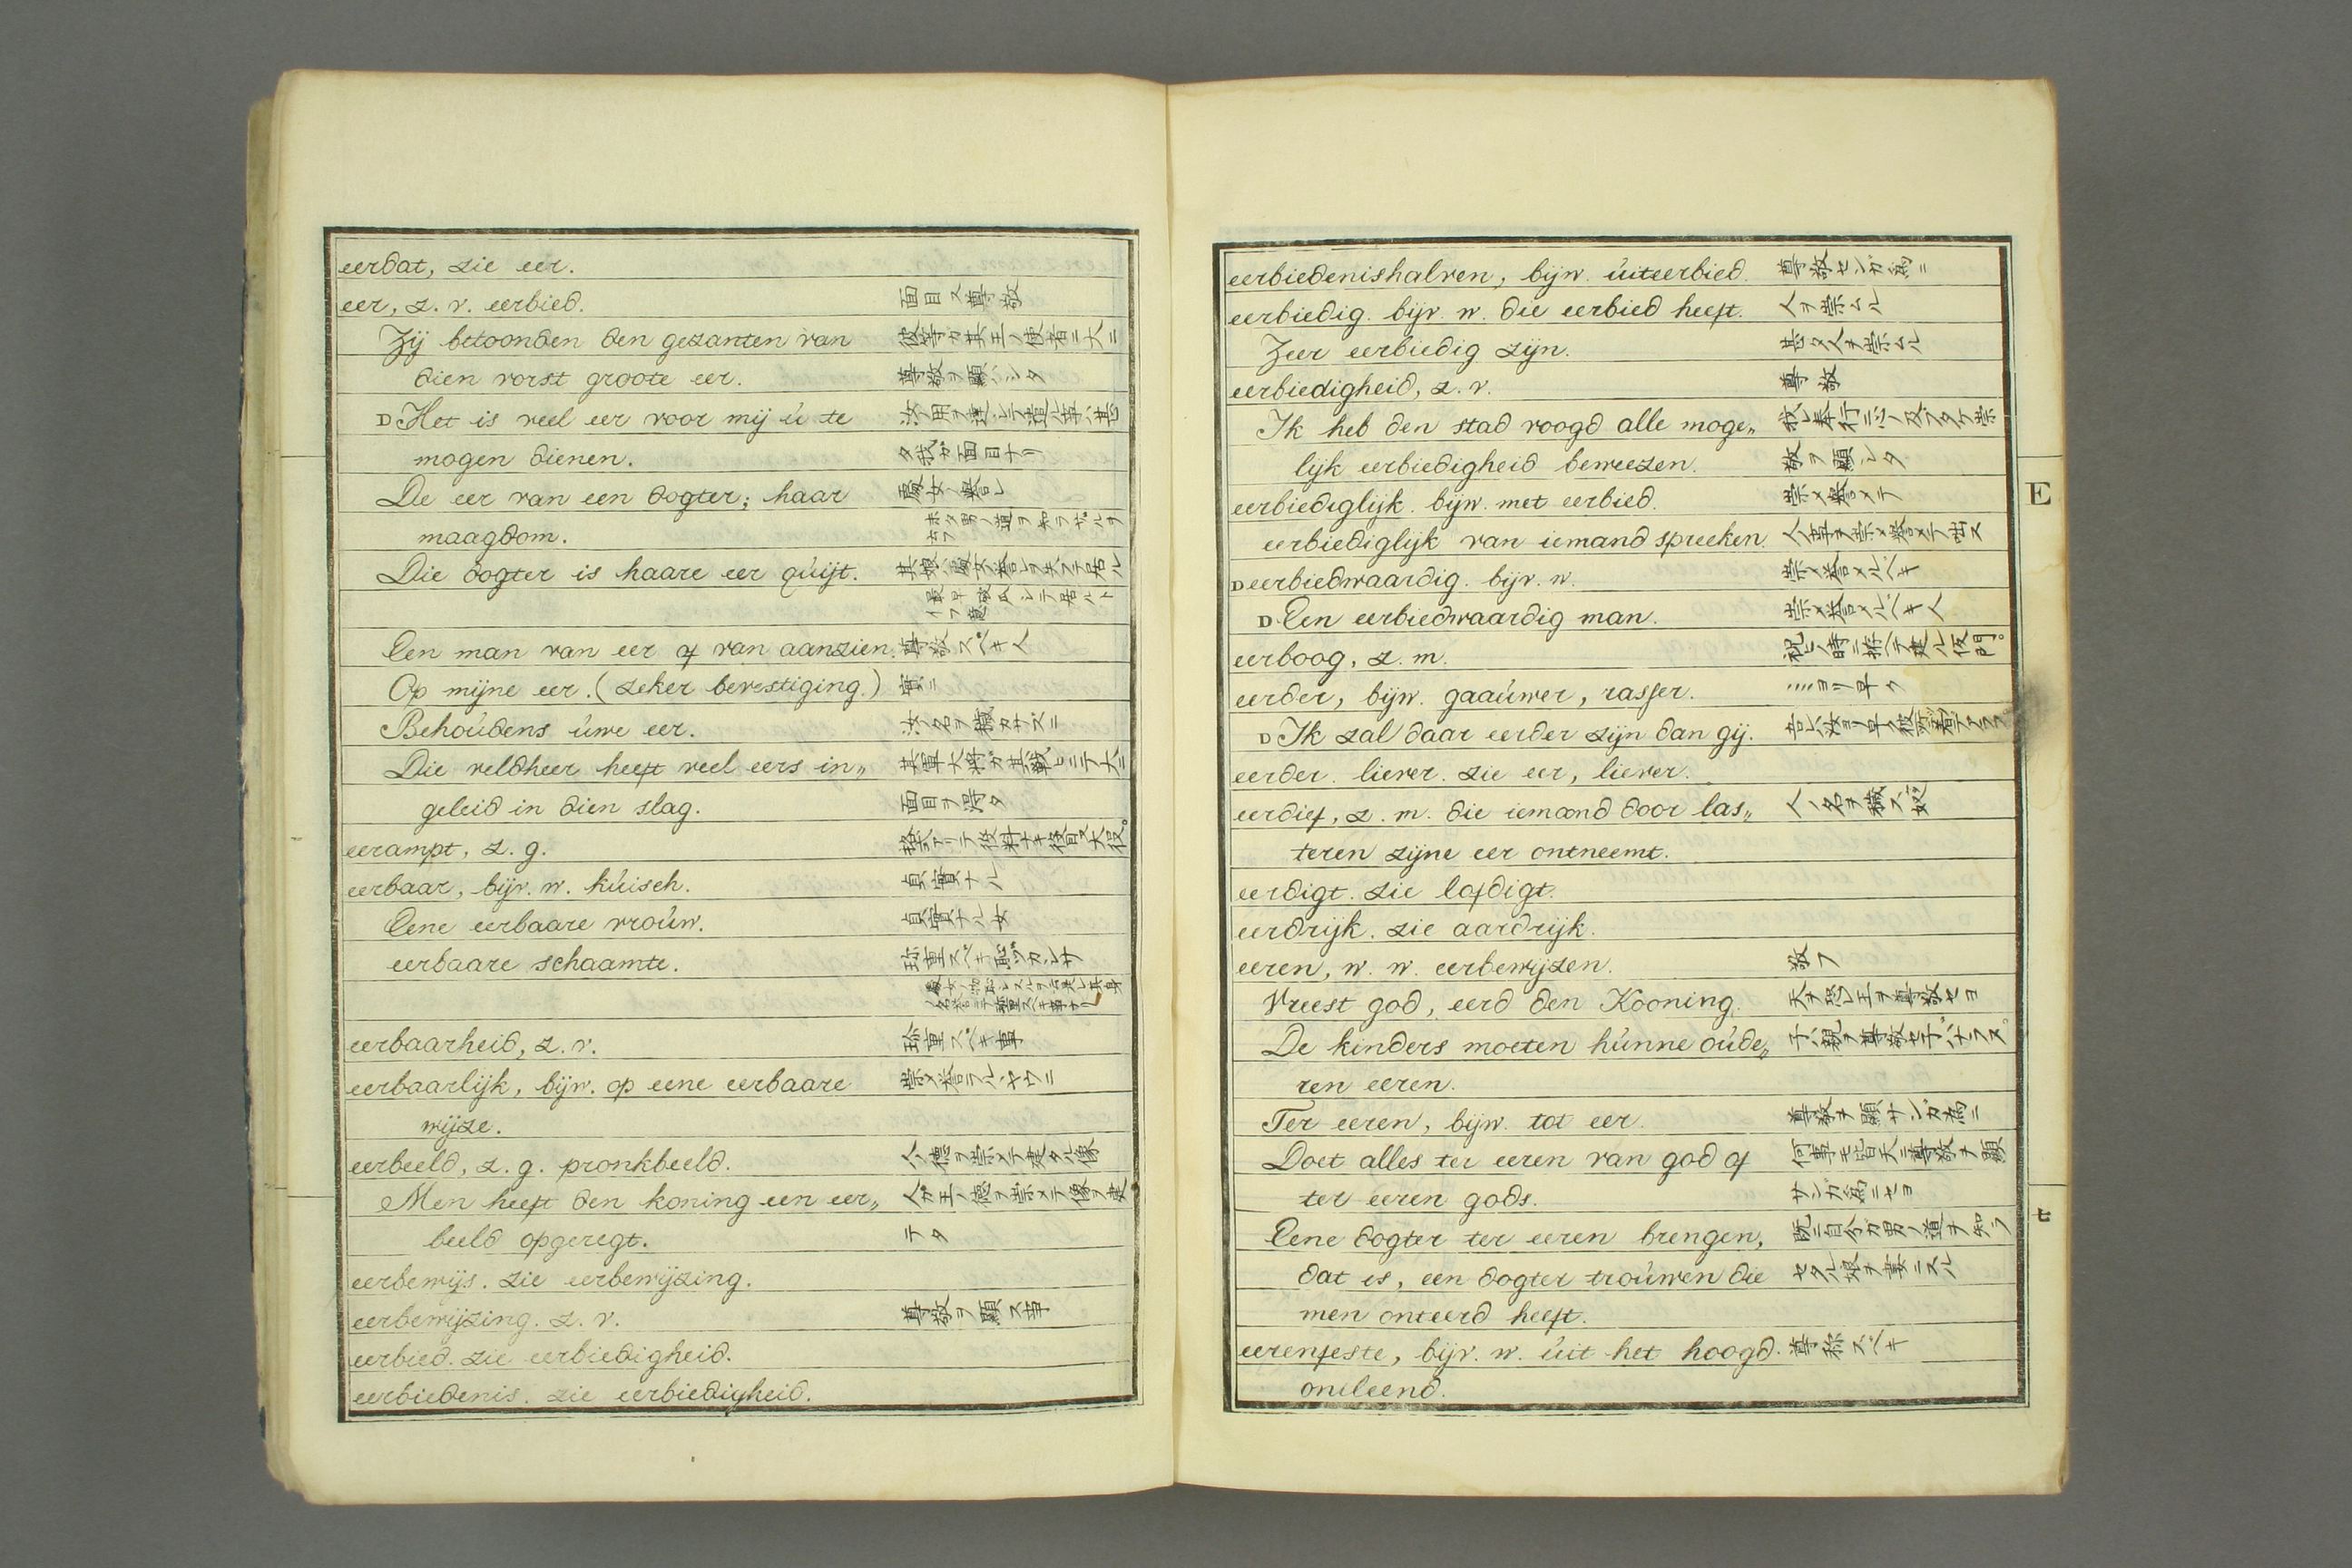 eerdat, zie eer.
eer, z. v. eerbied. 面目又尊敬
Zij betoonden den gezanten van 彼等ガ其王ノ使者ニ大ニ
dien vorst groote eer. 尊敬ヲ顕ハシタ
D Het is veel eer voor mij ú te 汝ノ用ヲ達シテ遣ル事ハ甚
mogen dienen. タ我ガ面目ナリ
De eer van een dogter; haar 處女ノ誉レ
maagdom. 未タ男ノ道ヲ知ラザルヲ云フ
Die dogter is haare eer qúijt. 其娘ハ處女ノ誉レヲ失フテ居ル
最早破瓜シテ居ルト
イフ意
Een man van eer of van aanzien. 尊敬スベキ人
Op mijne eer. (zeker bevestiging.) 實ニ
Behoúdens úwe eer. 汝ノ名ヲ穢サズニ
Die veldheer heeft veel eers in„ 其軍大将ガ其戦ヒニテ大ニ
geleid in dien slag. 面目ヲ得タ
eerampt, z. g.
eerbaar, bijv. w. kúisch. 貞實ナル
Eene eerbaare vroúw. 貞實ナル女
eerbaare schaamte. 珍重スベキ恥ヅカシサ
eerbaarheid, z. v. 珍重スベキ事
eerbaarlijk, bijw. op eene eerbaare 崇メ誉ラルヽヤウニ
wijze.
eerbeeld, z. g. pronkbeeld. 人ノ德ヲ崇メテ建タル像
Men heeft den koning een eer„ 人ガ王ノ德ヲ崇メテ像ヲ建
beeld opgeregt. テタ
eerbewijs. zie eerbewijzing.
eerbewijzing. z. v. 尊敬ヲ顕ス事
eerbied. zie eerbiedigheid.
eerbiedenis. zie eerbiedigheid.
eerbiedenishalven, bijw. úiteerbied. 尊敬センガ為ニ
eerbiedig. bijv. w. die eerbied heeft. 人ヲ崇ムル
Zeer eerbiedig zijn. 甚タ人ヲ崇ムル
eerbiedigheid, z. v. 尊敬
Ik heb den stad voogd alle moge„ 我レ奉行ニ心ノ及フタケ崇
lijk eerbiedigheid beweezen. 敬ヲ顕シタ
eerbiediglijk. bijw. met eerbied. 崇メ誉メテ
eerbiediglijk van iemand spreeken. 人ノ事ヲ崇メ誉メテ咄ス
D eerbiedwaardig. bijv. w. 崇メ誉メルベキ
D Een eerbiedwaardig man. 崇メ誉メルベキ人
eerboog, z. m. 祝ヒノ時ニ拵ヘテ建ル仮門。
eerder, bijw. gaaúwer, rasser. ……ヨリ早ク
D Ik zal daar eerder zijn dan gij.
eerder. liever. zie eer, liever.
eerdief, z. m. die iemand door las„ 人ノ名ヲ穢ス奴
teren zijne eer ontneemt.
eerdigt. zie lofdigt.
eerdrijk. zie aardrijk.
eeren, w. w. eerbewijzen. 敬フ
Vreest god, eerd den Kooning. 天ヲ恐レ王ヲ尊敬セヨ
De kinders moeten húnne oúde„ 子ハ親ヲ尊敬セ子バナラヌ。
ren eeren.
Ter eeren, bijw. tot eer. 尊敬ヲ顕サンガ為ニ
Doet alles ter eeren van god of 何事モ皆天ニ尊敬ヲ顕
ter eeren gods. サンガ為ニセヨ
Eene dogter ter eeren brengen, 既ニ自分ガ男ノ道ヲ知ラ
dat is, een dogter troúwen die セタル娘ヲ妻ニスル
men onteerd heeft.
eerenfeste, bijv. w. úit het hoogd. 尊称スベキ
ontleend.
E